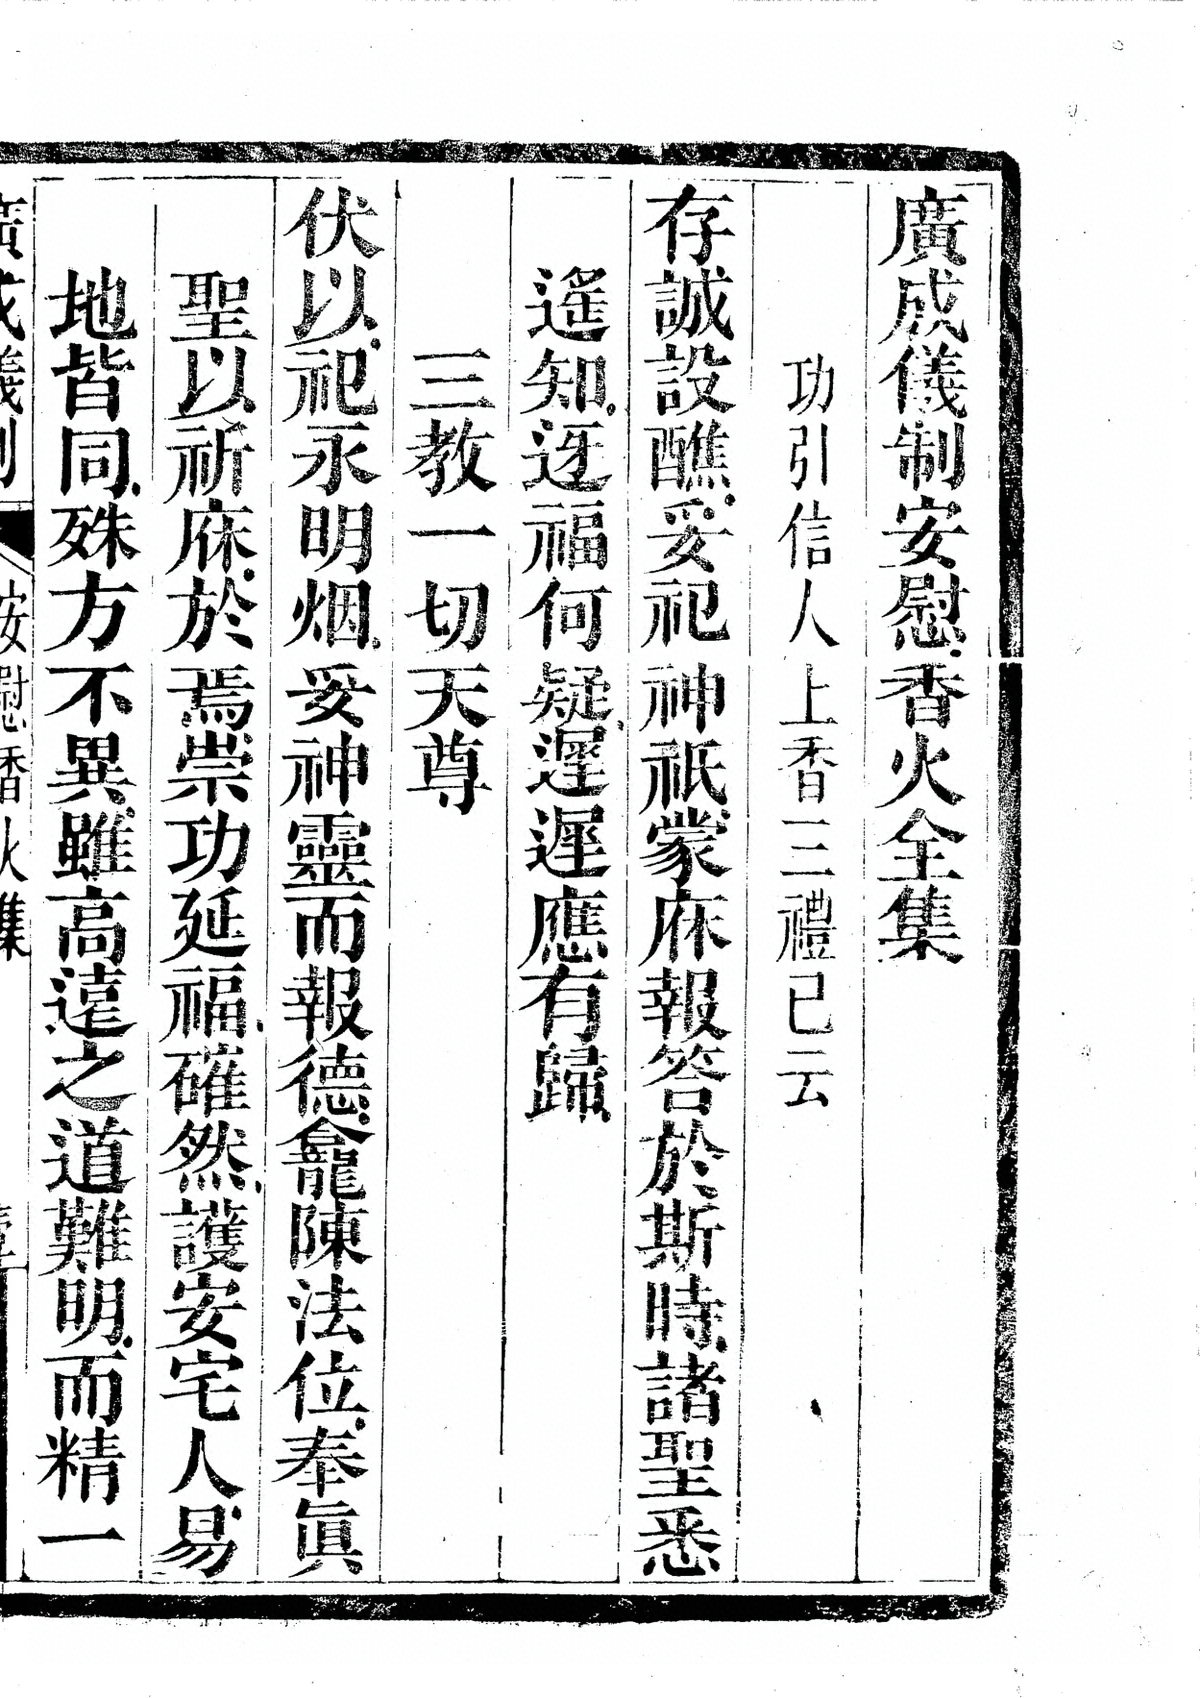 廣成儀制安慰香火全集
功引信人上香三禮已云
存誠設醮妥祀神祇蒙庥報答於斯時諸聖悉
遙知迓福何疑遲遲應有歸
三教一切天尊
伏以祀永明烟妥神靈而報德龕陳法位奉眞
聖以祈庥於焉崇功延福確然護安宅人易
地皆同殊方不異雖高遠之道難明而精一
廣成儀制 安慰香火集